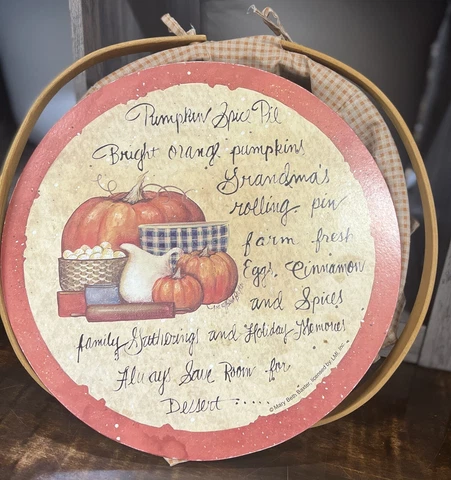 Pumpkin Spice Pie
Bright orang pumpkins
Grandma's
rolling pin
farm fresh
Eggs, Cinnamon
and Spices
family Gatherings and Holiday Memories
Always Save Room for
Desert.....
© Mary Beth Baxter, licensed by LMI, Inc.